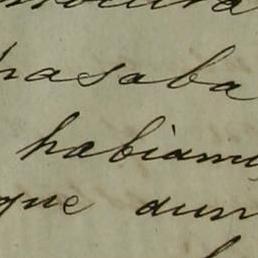 pasaba
habiamos
que aun